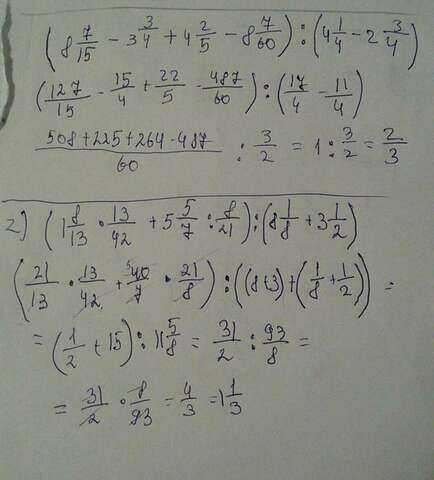 (8 7/15 - 3 3/4 + 4 2/5 - 8 7/60) : (4 1/4 - 2 3/4)
(127/15 - 15/4 + 22/5 - 487/60) : (17/4 - 11/4)
508+225+264-487/60 : 3/2 = 1 : 3/2 = 2/3
2) (1 8/13 · 13/42 + 5 5/7 : 8/21) : (8 1/8 + 3 1/2)
(21/13 · 13/42 + 40/7 · 21/8) : ((8+3)+(1/8+1/2)) =
= (1/2 + 15) : 11 5/8 = 31/2 : 93/8 =
= 31/2 · 8/93 = 4/3 = 1 1/3